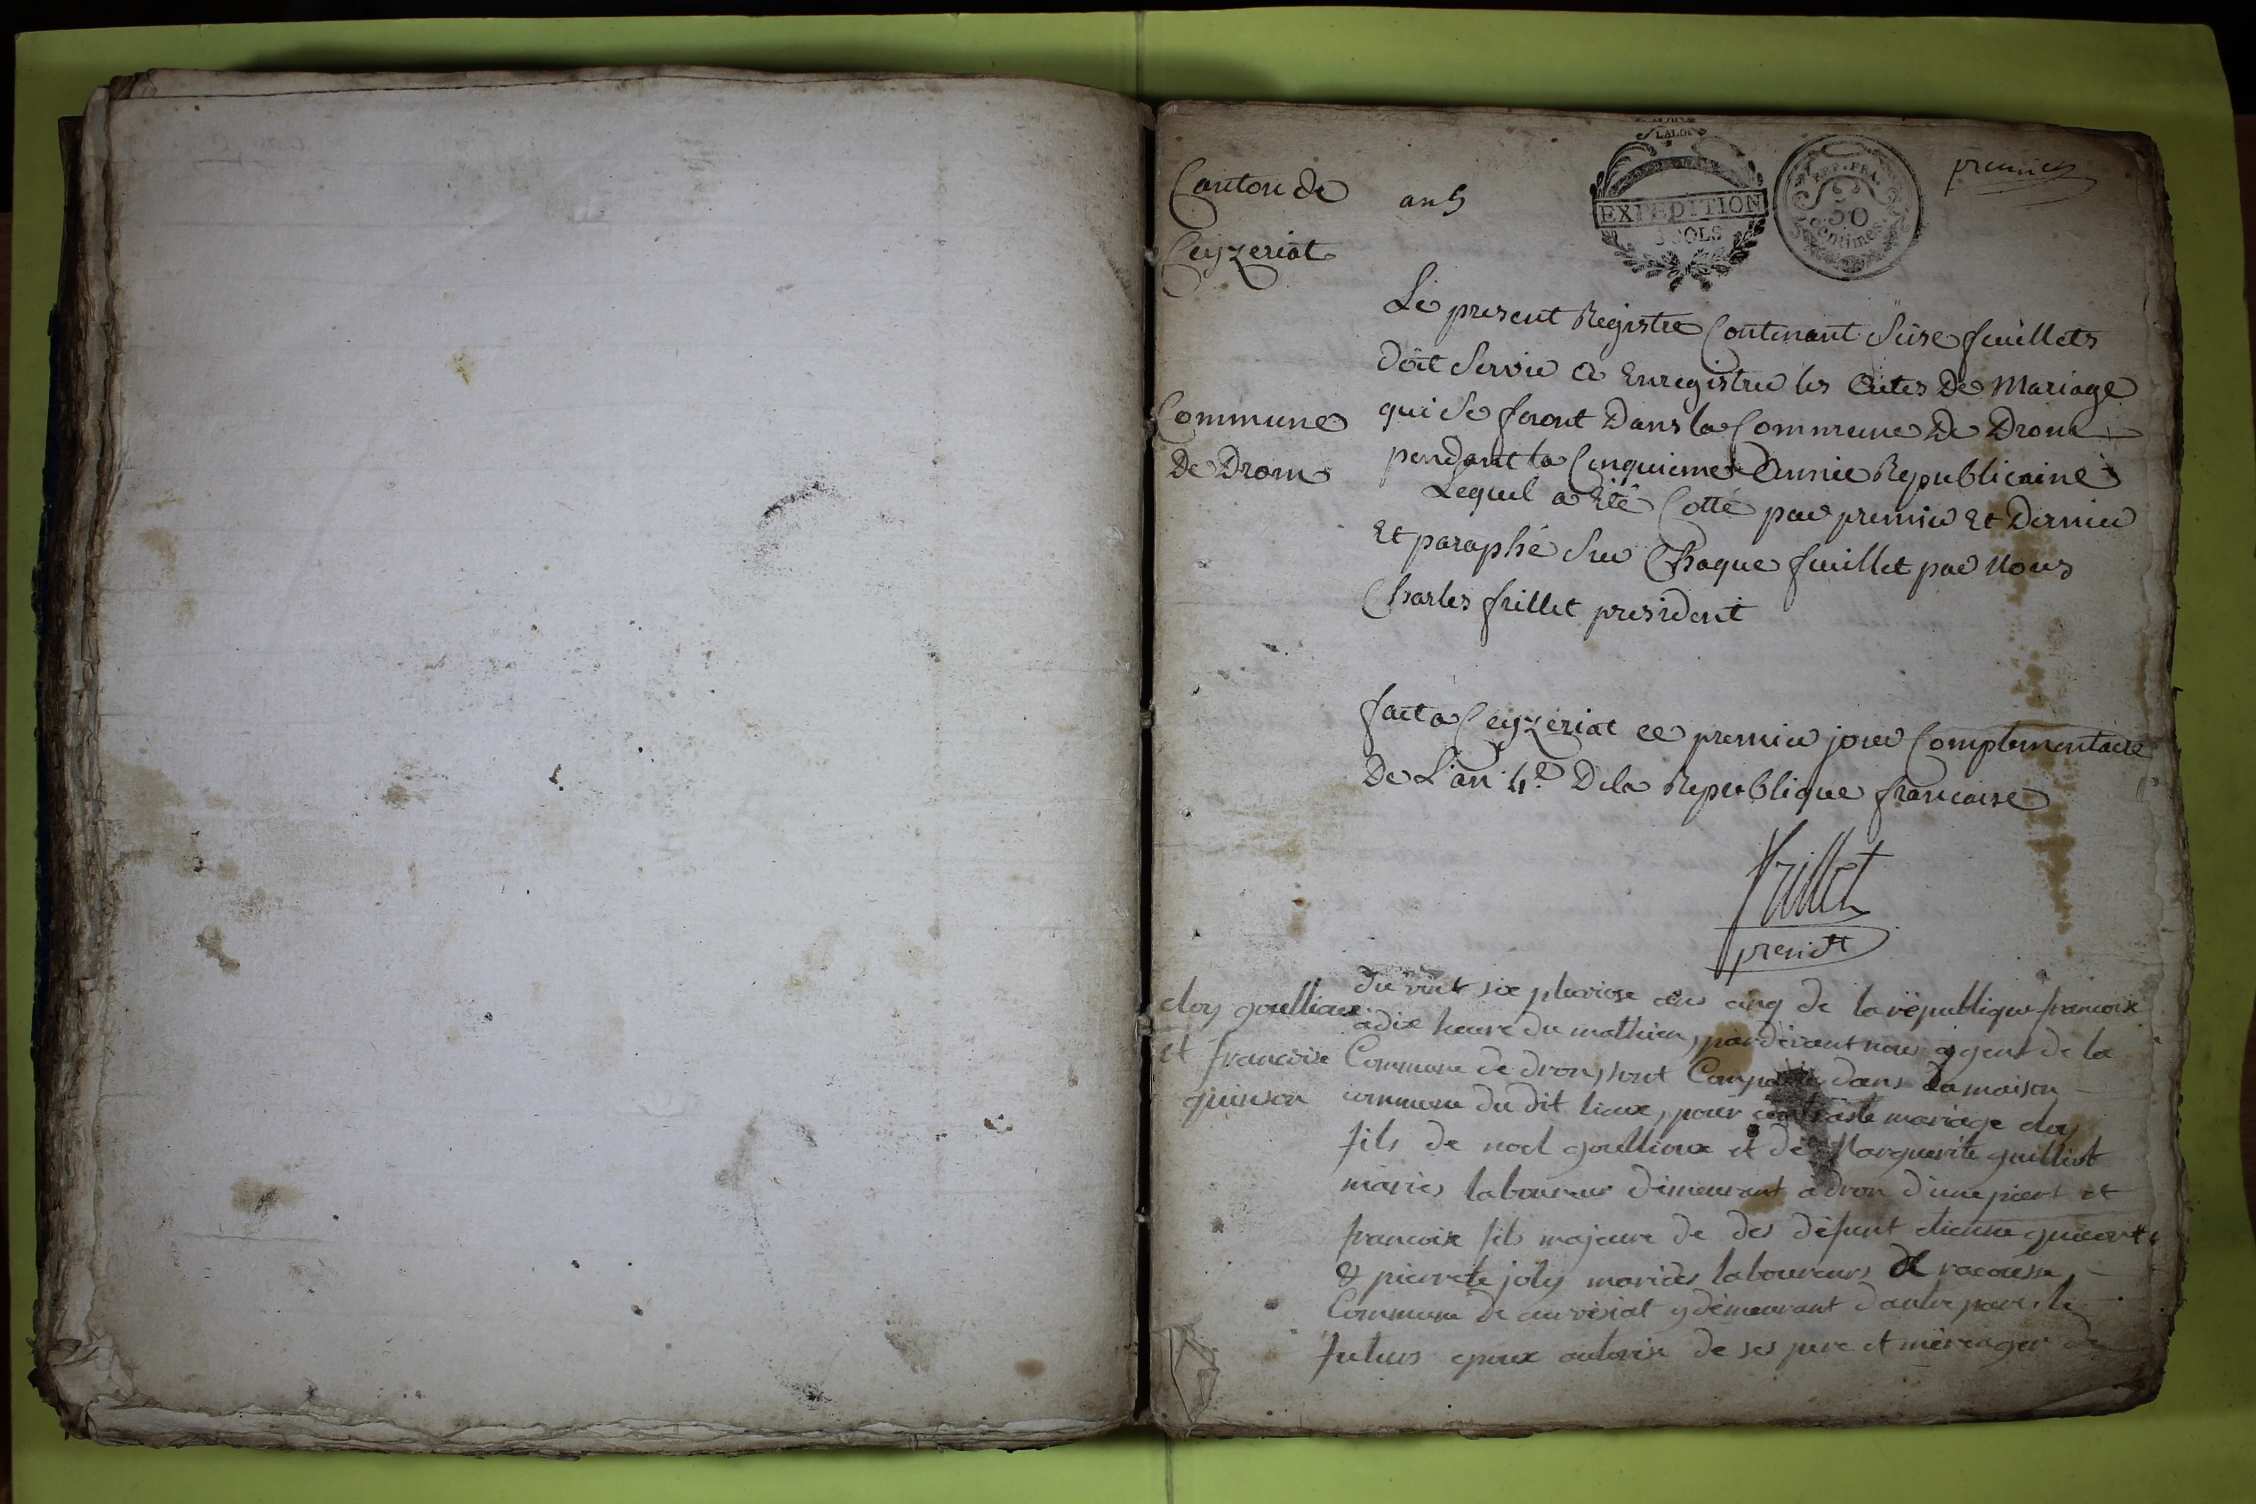 premier
EXPEDITION
SOLS
REP. FRA.
50
Centimes
Canton de
Ceyzeriat
an 5
Commune
De Drom
Le present Registre Contenant Seise feuillets
Doit Servir a Enregistrer les actes De Mariage
qui Se feront Dans la Commune De Drom
pendant la Cinquieme Année Republicaine
Lequel a Eté Cotté par premier Et Dernier
Et paraphé Sur Chaque feuillet par Nous
Charles frillet president
fait a Ceyzeriat ce premier jour Complementaire
De L'an 4.e De la Republique francaise
frillet
presidt
eloy goullioux
et francoise
quinson
du vint six pluviose ans cinq de la république francoise
a dix heure du mathien, pardevant nous agent de la
Commune de dron, sont Comparu dans La maison
commune du dit lieux, pour mariage eloy
fils de noel goullioux et de Marguerite guilliot
mariés laboureur demeurant a dron d'une part et
francoise fils majeure de des défunt etienne
& pierrete joly mariés laboureurs de
Commune de demeurant d'autre part, le
futurs epoux autorisé de ses pere et mere